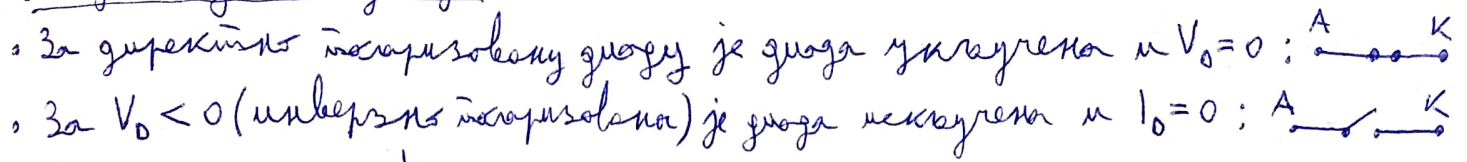 • За директно поларизовану диоду је диода укључена и V_D=0 ; A K
• За V_D < 0 (инверзно поларизована) је диода искључена и I_D=0 ; A K